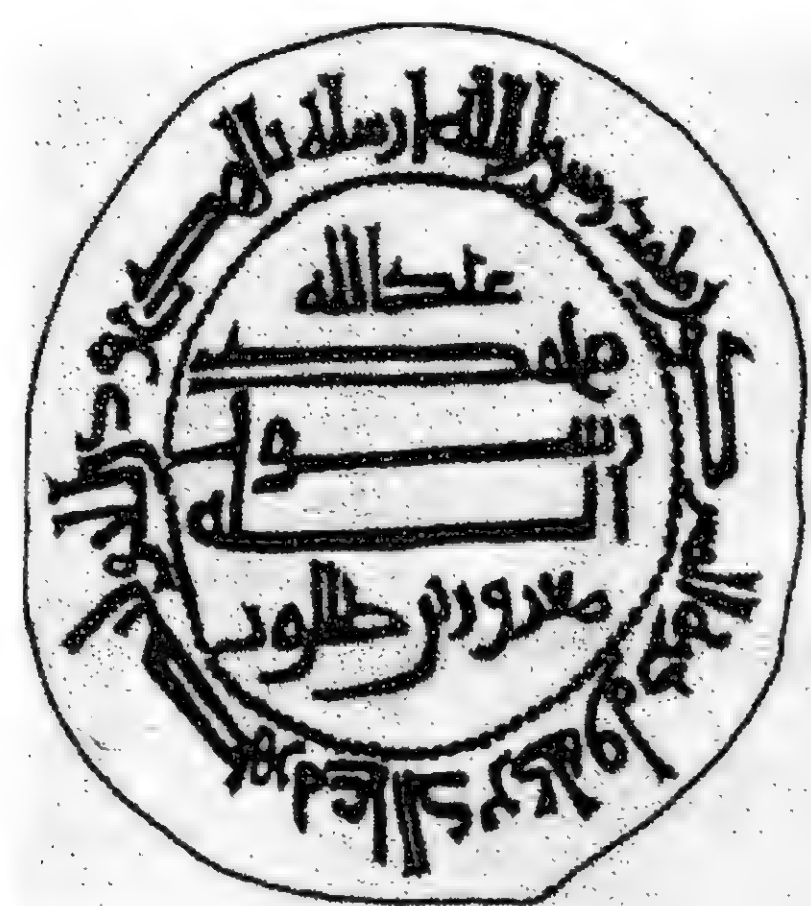 محمد رسول الله ارسله بالهدى ودين الحق ليظهره على الدين كله ولو كره المشركون
عبدالله
محمد
رسول
الله